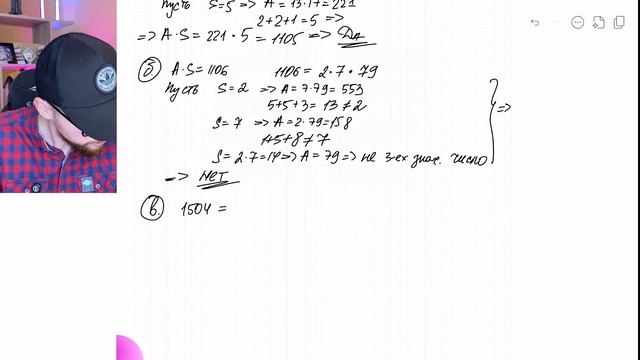 Пусть S=5 => A = 13·17 = 221
2+2+1 = 5 =>
=> A·S = 221·5 = 1105 => ДА
б A·S = 1106 1106 = 2·7·79
Пусть S=2 => A = 7·79 = 553
5+5+3 = 13 ≠ 2
S=7 => A = 2·79 = 158
1+5+8 ≠ 7
S = 2·7 = 14 => A = 79 => не 3-ех знач. число =>
=> НЕТ
в. 1504 =